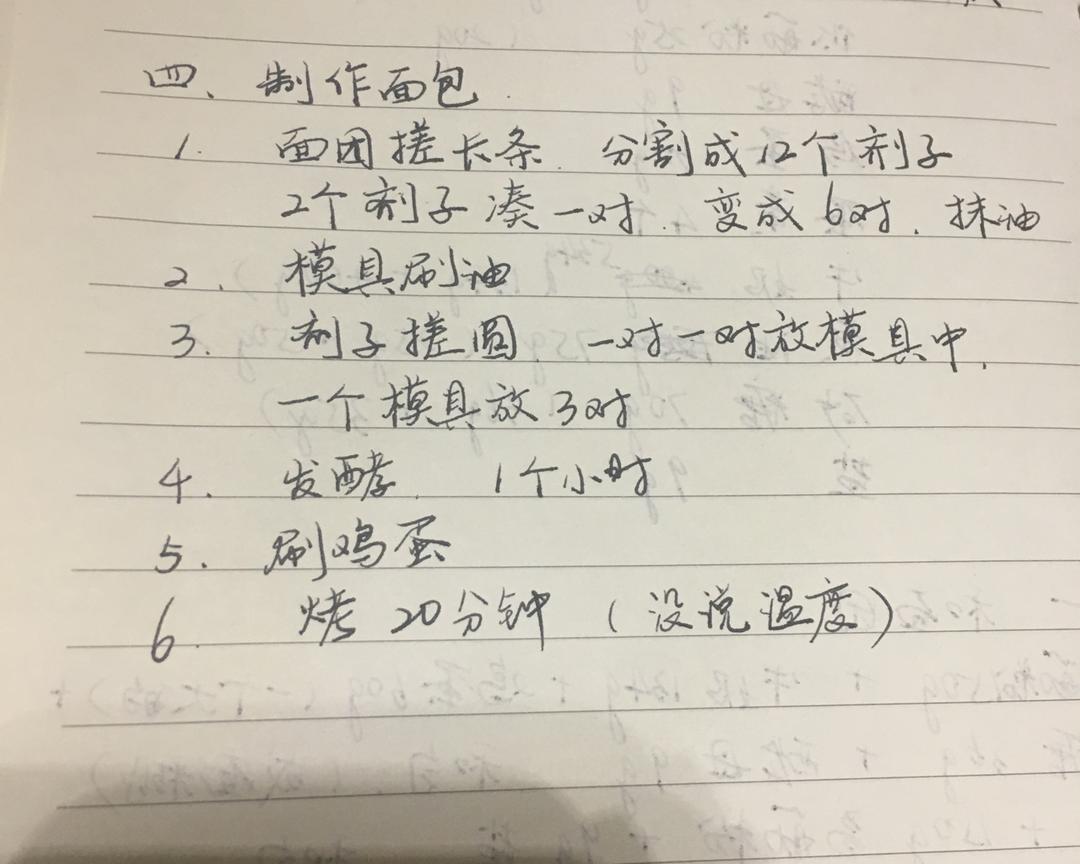 四、制作面包.
1. 面团搓长条. 分割成12个剂子
2个剂子凑一对. 变成6对. 抹油
2. 模具刷油
3. 剂子搓圆. 一对一对放模具中.
一个模具放3对
4. 发酵. 1个小时
5. 刷鸡蛋
6. 烤20分钟(没说温度)